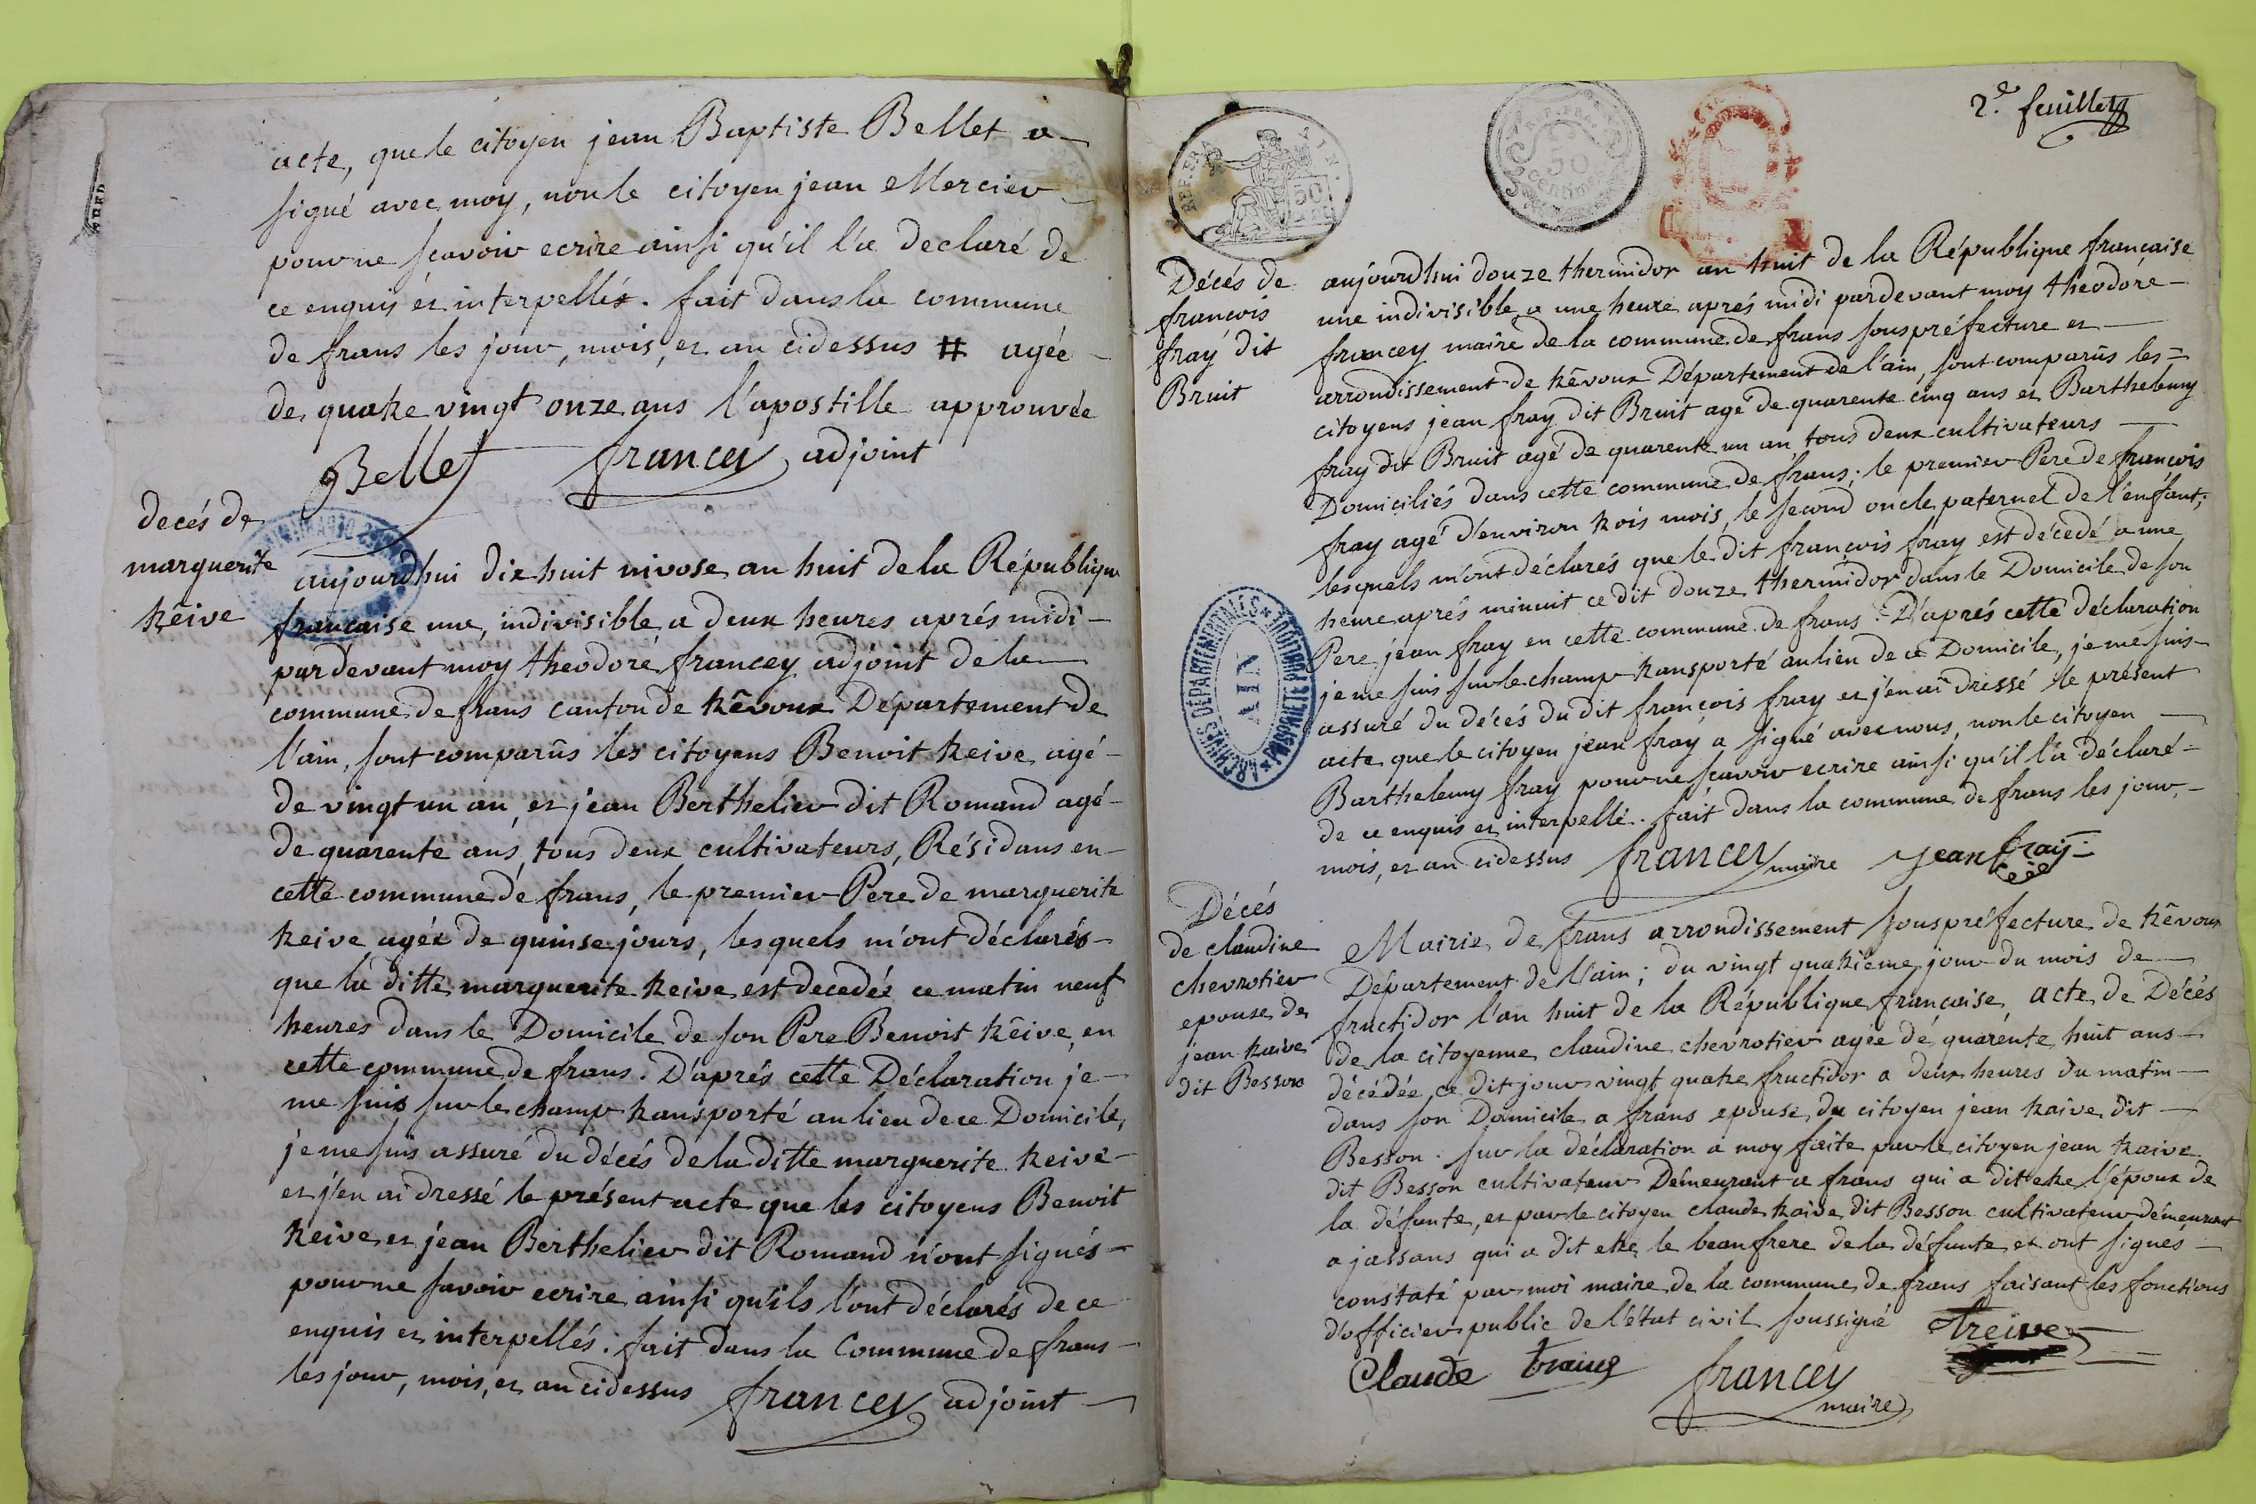 acte, que le citoyen jean Baptiste Bellet a
signé avec moy, non le citoyen jean Mercier
pour ne sçavoir ecrire ainsi qu'il l'a declaré de
ce enquis et interpellé. fait dans la commune
de frans les jour, mois, et an cidessus # agée
de quatre vingt onze ans l'apostille approuvée
Bellet francey adjoint
decés de
marguerite
treive
aujourdhui dix huit nivose an huit de la République
française une, indivisible, a deux heures aprés midi
pardevant moy theodore francey adjoint de la
commune de frans canton de trêvoux Département de
l'ain, sont comparûs les citoyens Benoit treive, agé
de vingt un an, et jean Berthelier dit Romand agé
de quarente ans, tous deux cultivateurs, Résidans en
cette commune de frans, le premier Pere de marguerite
treive agée de quinse jours, lesquels m'ont déclarés
que la ditte marguerite treive est decedée ce matin neuf
heures dans le Domicile de son Pere Benoit treive, en
cette commune de frans. D'aprés cette Déclaration je
me suis sur le champ transporté au lieu de ce Domicile,
je me suis assuré du décés de la ditte marguerite treive
et j'en ai dressé le présent acte que les citoyens Benoit
treive et jean Berthelier dit Romand n'ont signés
pour ne savoir ecrire ainsi qu'ils l'ont déclarés de ce
enquis et interpellés. fait dans la Commune de frans
les jour, mois, et an cidessus francey adjoint
2e. feuillet
REP. FRA.
50
50
centimes
Décés de
françois
fray dit
Bruit
aujourdhui douze thermidor an huit de la République française
une indivisible, a une heure aprés midi pardevant moy théodore
francey maire de la commune de frans souspréfecture et
arrondissement de trêvoux Département de l'ain, sont comparûs les
citoyens jean fray dit Bruit agé de quarente cinq ans et Barthelemy
fray dit Bruit agé de quarente un an, tous deux cultivateurs
Domiciliés dans cette commune de frans; le premier Pere de françois
fray agé d'environ trois mois, le second oncle paternel de l'enfant;
lesquels m'ont déclarés que le dit françois fray est décedé a une
heure aprés minuit ce dit douze thermidor dans le Domicile de son
Pere jean fray en cette commune de frans. D'aprés cette déclaration
je me suis sur le champ transporté au lieu de ce Domicile, je me suis
assuré du décés du dit françois fray et j'en ai dressé le présent
acte que le citoyen jean fray a signé avec nous, non le citoyen
Barthelemy fray pour ne sçavoir ecrire ainsi qu'il l'a déclaré
de ce enquis et interpellé. fait dans la commune de frans les jour,
mois, et an cidessus francey maire jean fray
ARCHIVES DÉPARTEMENTALES * PROPRIETE PUBLIQUE *
AIN
Décés
de claudine
chevrotier
epouse de
jean traive
dit Besson
Mairie de frans arrondissement souspréfecture de trêvoux
Département de l'ain; du vingt quatrieme jour du mois de
fructidor l'an huit de la République française, acte de Décés
de la citoyenne claudine chevrotier agée de quarente huit ans
décédée, ce dit jour vingt quatre fructidor a deux heures du matin
dans son Domicile a frans epouse du citoyen jean traive dit
Besson. sur la déclaration a moy faite par le citoyen jean traive
dit Besson cultivateur Démeurant a frans qui a dit etre l'époux de
la défunte, et par le citoyen claude traive dit Besson cultivateur démeurant
a jassans qui a dit etre le beaufrere de la défunte et ont signés
constaté par moi maire de la commune de frans faisant les fonctions
d'officier public de l'état civil soussigné treive
Claude traive francey
maire